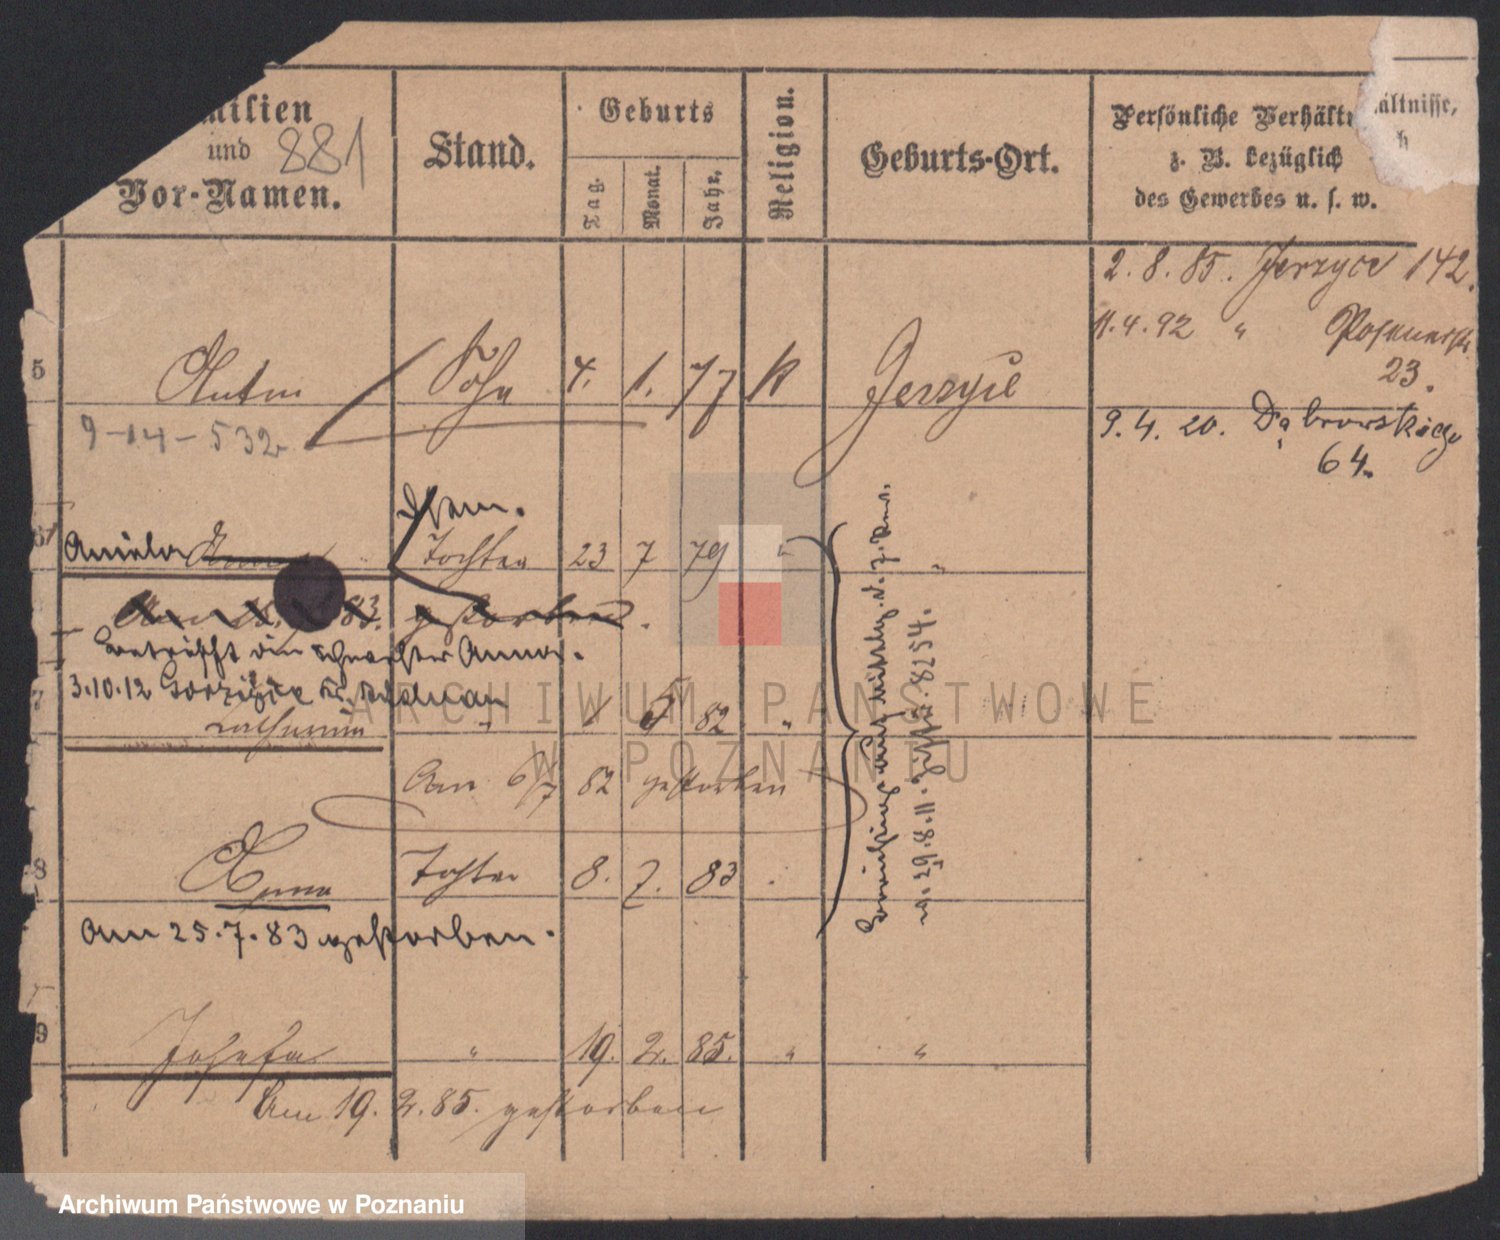 milien
und 881
Vor-Namen.
Stand.
Geburts
Tag.
Monat.
Jahr.
Religion.
Geburts-Ort.
Persönliche Verhält
ältnisse,
z. B. bezüglich
h
des Gewerbes u. s. w.
2. 8. 85. Jerzyce 142.
11. 4. 92 " Posenerstr.
23.
9. 4. 20. Dąbrowskiego
64.
5 Anton Sohn 4. 1. 77 K Jerzyce
9-14-532
6 Aniela Anna Tochter 23 7 79 " "
Am 83. gestorben.
betrifft die Schwester Anna.
3.10.12
7 Catharina " 1 5 82 "
Am 6/7 82 gestorben
8 Anna Tochter 8. 7. 83
Am 25.7.83 gestorben.
9 Josefa " 19. 2. 85. " "
Am 19. 2. 85. gestorben
29.8.11. 8754.
ARCHIWUM PAŃSTWOWE
W POZNANIU
Archiwum Państwowe w Poznaniu